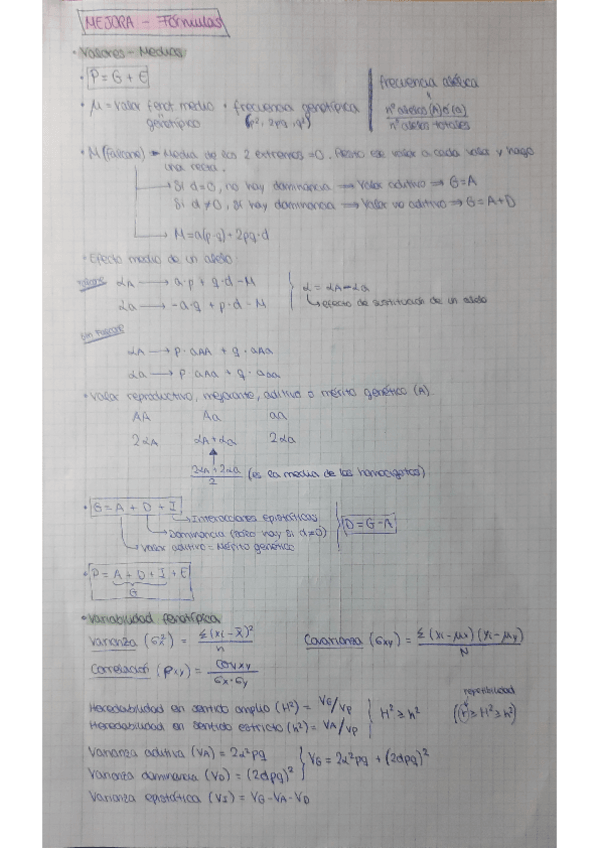 MEJORA - Fórmulas
• Valores - Medias
• P = G + E
frecuencia alélica
nº alelos (A) ó (a) / nº alelos totales
• μ = valor fenot medio · frecuencia genotípica
genotípico (p², 2pq, q²)
• M (Falconer) → Media de los 2 extremos = 0. Resto ese valor a cada valor y hago
una recta.
→ Si d=0, no hay dominancia ⟹ Valor aditivo ⟹ G=A
Si d≠0, sí hay dominancia ⟹ Valor no aditivo ⟹ G=A+D
→ M = a(p-q) + 2pq·d
• Efecto medio de un alelo
Falconer αA → a·p + q·d - M
αa → -a·q + p·d - M
α = αA - αa
↳ efecto de sustitución de un alelo
Sin Falconer
αA → p·aAA + q·aAa
αa → p aAa + q·aaa
• Valor reproductivo, mejorante, aditivo o mérito genético (A)
AA Aa aa
2αA αA+αa 2αa
2αA + 2αa / 2 (es la media de los homocigotos)
• G = A + D + I
→ Interacciones epistáticas
→ Dominancia (sólo hay si d≠0)
→ Valor aditivo = Mérito genético
D = G - A
• P = A + D + I + E
G
• Variabilidad fenotípica
Varianza (σx²) = Σ(xi - x̄)² / n
Covarianza (σxy) = Σ(xi - μx)(yi - μy) / N
Correlación (ρxy) = cov xy / σx·σy
Heredabilidad en sentido amplio (H²) = VG/VP
Heredabilidad en sentido estricto (h²) = VA/VP
H² ≥ h²
repetibilidad
(r ≥ H² ≥ h²)
Varianza aditiva (VA) = 2α²pq
Varianza dominancia (VD) = (2dpq)²
VG = 2α²pq + (2dpq)²
Varianza epistática (VI) = VG - VA - VD